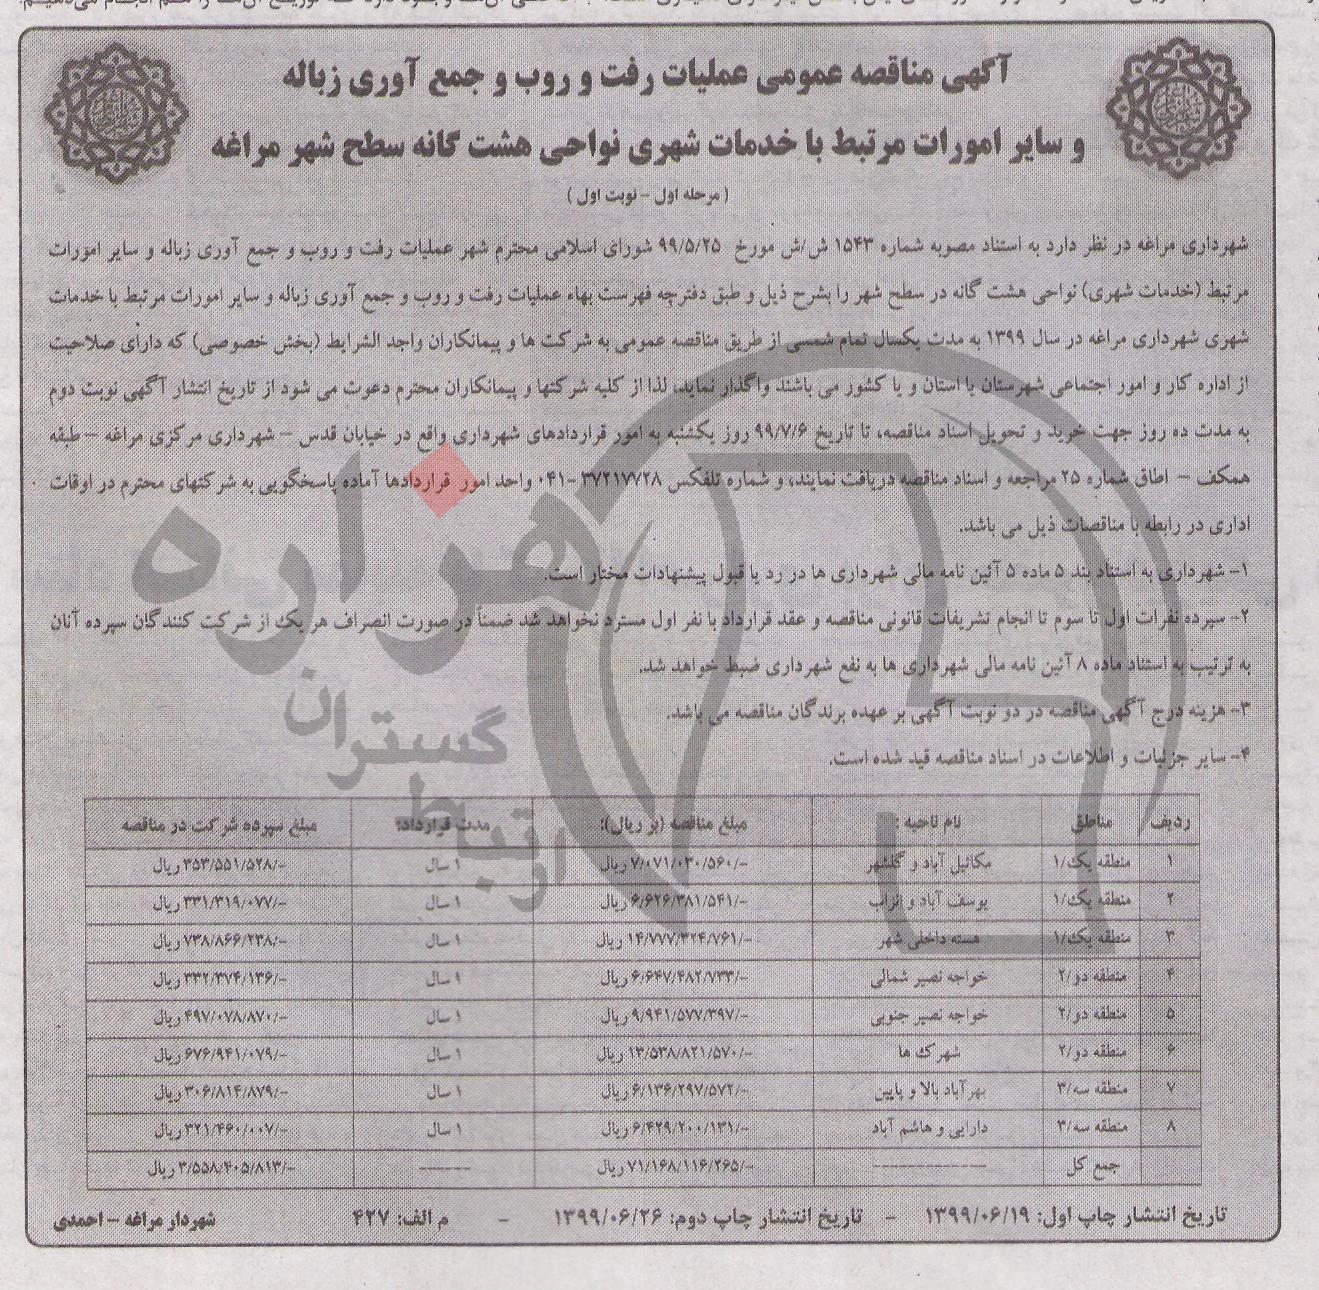 آگهی مناقصه عمومی عملیات رفت و روب و جمع آوری زباله
و سایر امورات مرتبط با خدمات شهری نواحی هشت گانه سطح شهر مراغه
( مرحله اول - نوبت اول )
شهرداری مراغه در نظر دارد به استناد مصوبه شماره ۱۵۴۳ ش/ش مورخ ۹۹/۵/۲۵ شورای اسلامی محترم شهر عملیات رفت و روب و جمع آوری زباله و سایر امورات
مرتبط (خدمات شهری) نواحی هشت گانه در سطح شهر را بشرح ذیل و طبق دفترچه فهرست بهاء عملیات رفت و روب و جمع آوری زباله و سایر امورات مرتبط با خدمات
شهری شهرداری مراغه در سال ۱۳۹۹ به مدت یکسال تمام شمسی از طریق مناقصه عمومی به شرکت ها و پیمانکاران واجد الشرایط (بخش خصوصی) که دارای صلاحیت
از اداره کار و امور اجتماعی شهرستان یا استان و یا کشور می باشند واگذار نماید، لذا از کلیه شرکتها و پیمانکاران محترم دعوت می شود از تاریخ انتشار آگهی نوبت دوم
به مدت ده روز جهت خرید و تحویل اسناد مناقصه، تا تاریخ ۹۹/۷/۶ روز یکشنبه به امور قراردادهای شهرداری واقع در خیابان قدس – شهرداری مرکزی مراغه – طبقه
همکف – اطاق شماره ۲۵ مراجعه و اسناد مناقصه دریافت نمایند، و شماره تلفکس ۳۷۲۱۷۷۲۸-۰۴۱ واحد امور قراردادها آماده پاسخگویی به شرکتهای محترم در اوقات
اداری در رابطه با مناقصات ذیل می باشد.
۱- شهرداری به استناد بند ۵ ماده ۵ آئین نامه مالی شهرداری ها در رد یا قبول پیشنهادات مختار است.
۲- سپرده نفرات اول تا سوم تا انجام تشریفات قانونی مناقصه و عقد قرارداد با نفر اول مسترد نخواهد شد ضمناً در صورت انصراف هر یک از شرکت کنندگان سپرده آنان
به ترتیب به استناد ماده ۸ آئین نامه مالی شهرداری ها به نفع شهرداری ضبط خواهد شد.
۳- هزینه درج آگهی مناقصه در دو نوبت آگهی بر عهده برندگان مناقصه می باشد.
۴- سایر جزئیات و اطلاعات در اسناد مناقصه قید شده است.
ردیف مناطق نام ناحیه : مبلغ مناقصه (بر ریال): مدت قرارداد: مبلغ سپرده شرکت در مناقصه
۱ منطقه یک/۱ مکائیل آباد و گلشهر ۷/۰۷۱/۰۳۰/۵۶۰/- ریال ۱ سال ۳۵۳/۵۵۱/۵۲۸/- ریال
۲ منطقه یک/۱ یوسف آباد و اتراب ۶/۶۲۶/۳۸۱/۵۴۱/- ریال ۱ سال ۳۳۱/۳۱۹/۰۷۷/- ریال
۳ منطقه یک/۱ هسته داخلی شهر ۱۴/۷۷۷/۳۲۴/۷۶۱/- ریال ۱ سال ۷۳۸/۸۶۶/۲۳۸/- ریال
۴ منطقه دو/۲ خواجه نصیر شمالی ۶/۶۴۷/۴۸۲/۷۳۳/- ریال ۱ سال ۳۳۲/۳۷۴/۱۳۶/- ریال
۵ منطقه دو/۲ خواجه نصیر جنوبی ۹/۹۴۱/۵۷۷/۳۹۷/- ریال ۱ سال ۴۹۷/۰۷۸/۸۷۰/- ریال
۶ منطقه دو/۲ شهرک ها ۱۳/۵۳۸/۸۲۱/۵۷۰/- ریال ۱ سال ۶۷۶/۹۴۱/۰۷۹/- ریال
۷ منطقه سه/۳ بهرآباد بالا و پایین ۶/۱۳۶/۲۹۷/۵۷۲/- ریال ۱ سال ۳۰۶/۸۱۴/۸۷۹/- ریال
۸ منطقه سه/۳ دارایی و هاشم آباد ۶/۴۲۹/۲۰۰/۱۳۱/- ریال ۱ سال ۳۲۱/۴۶۰/۰۰۷/- ریال
جمع کل ------------- ۷۱/۱۶۸/۱۱۶/۲۶۵/- ریال ------ ۳/۵۵۸/۴۰۵/۸۱۳/- ریال
تاریخ انتشار چاپ اول: ۱۳۹۹/۰۶/۱۹ - تاریخ انتشار چاپ دوم: ۱۳۹۹/۰۶/۲۶ - م الف: ۴۲۷ شهردار مراغه – احمدی
هزاره
گستران
ارتباط